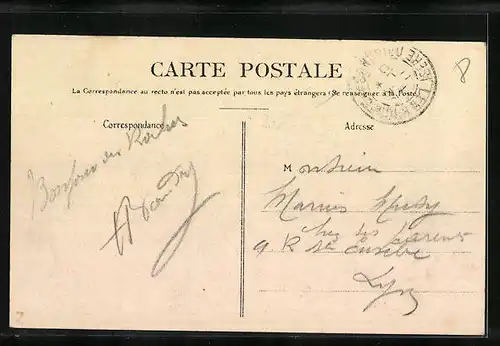 CARTE POSTALE
La Correspondance au recto n'est pas acceptée par tous les pays étrangers (Se renseigner à la Poste)
Correspondance
Adresse
Bonjour des Roches
Monsieur
Marius
chez
9. R Ste Eusèbe
Lyon
8